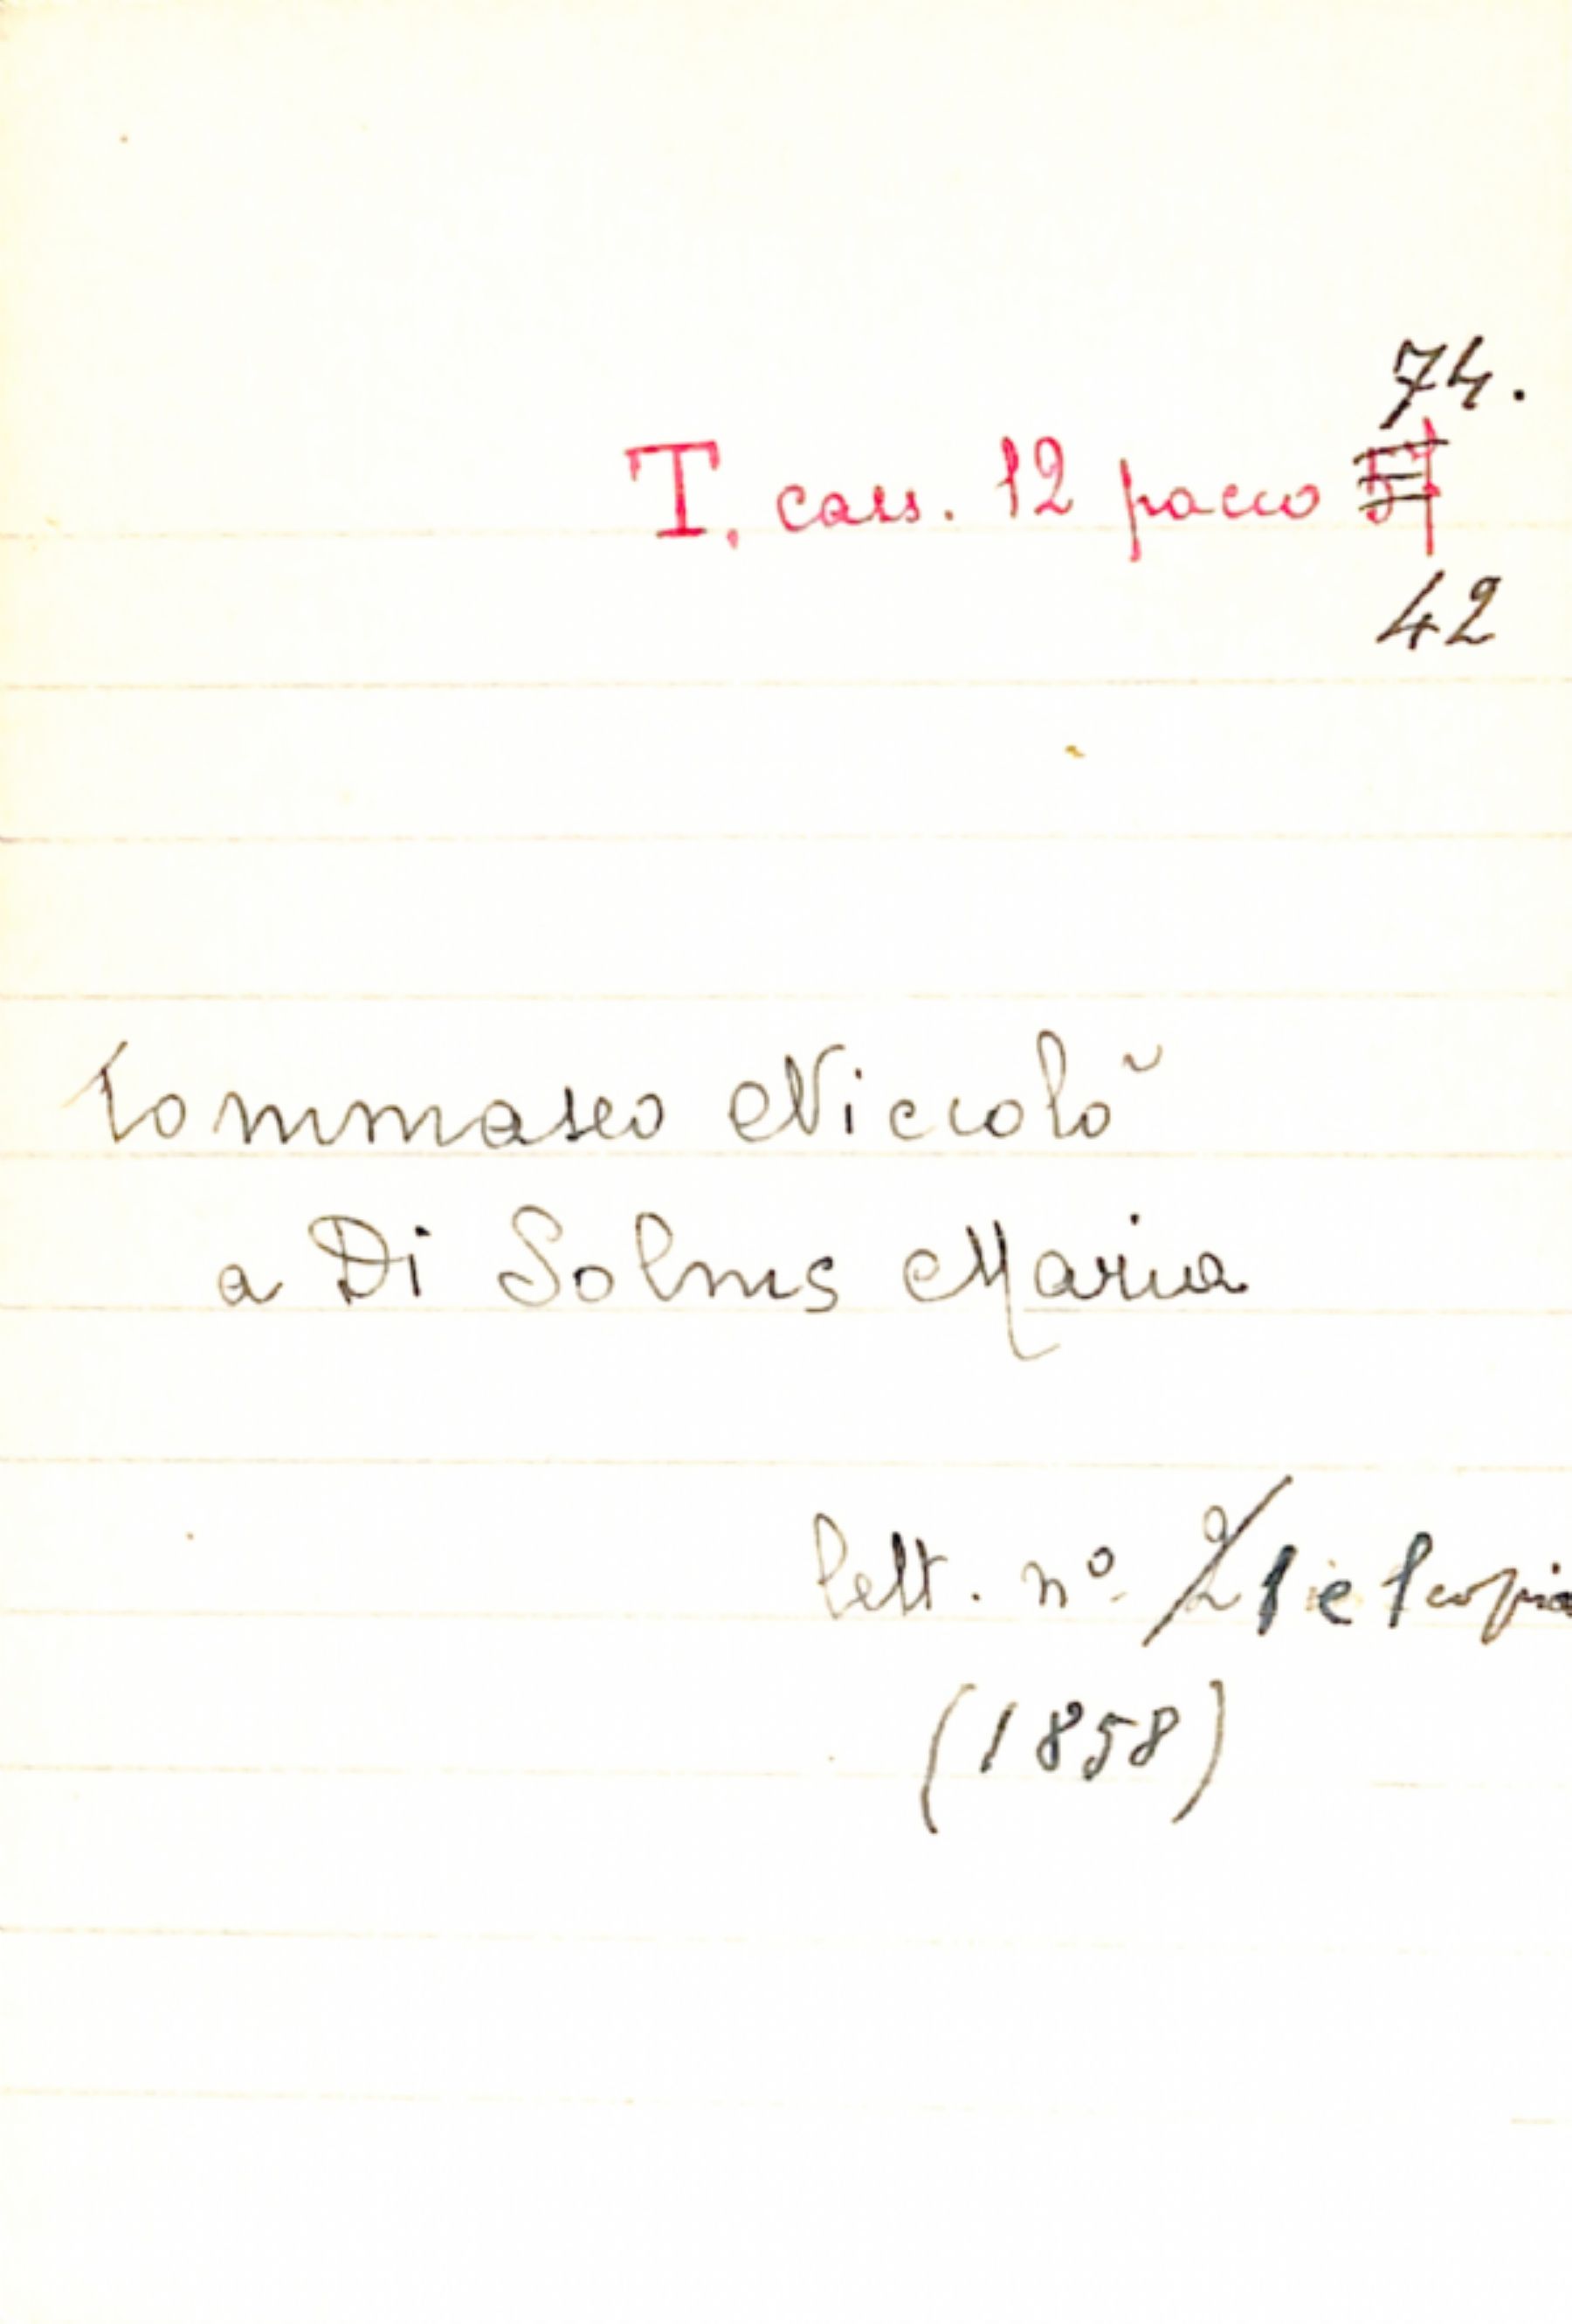 74.
T. cass. 12 pacco 57
42
Tommaseo Niccolò
a Di Solms Maria
lett. nº 2 1 e 1 copia
(1858)